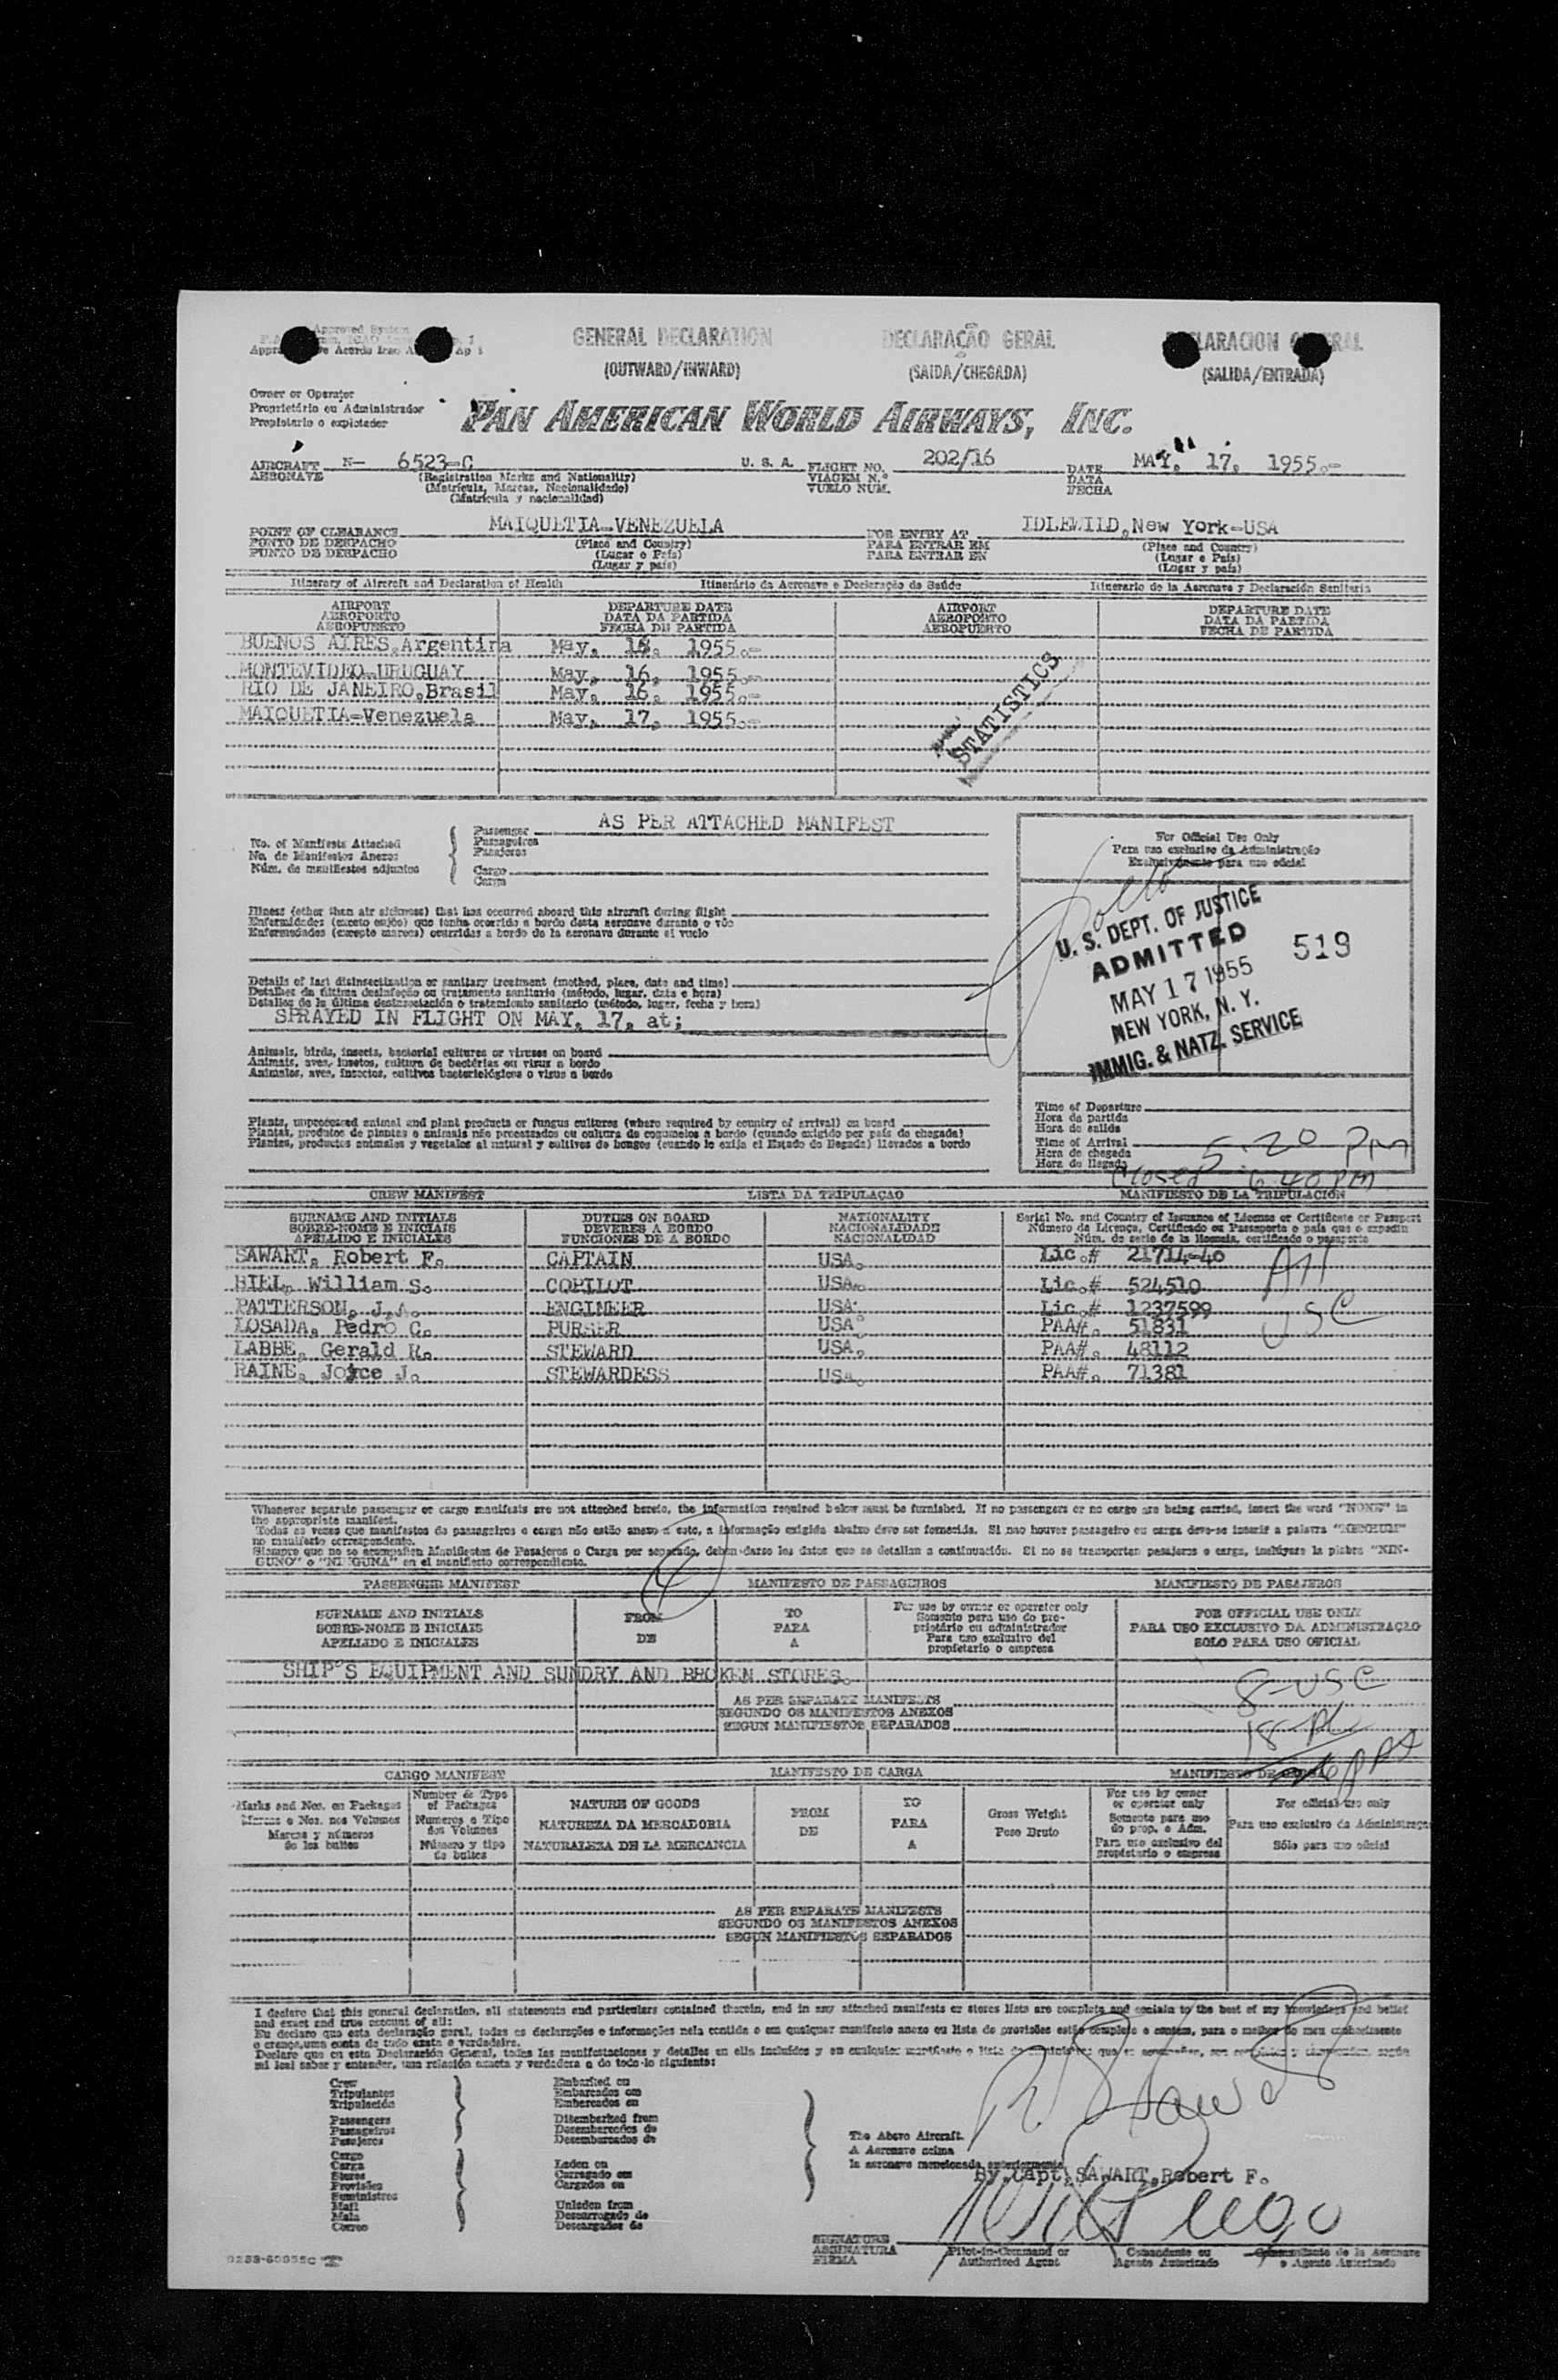 Approved System
Acordo Icao
GENERAL DECLARATION
(OUTWARD/INWARD)
DECLARAÇÃO GERAL
(SAIDA/CHEGADA)
(SALIDA/ENTRADA)
Owner or Operator
Proprietário ou Administrador
Propietario o explotador
PAN AMERICAN WORLD AIRWAYS, INC.
AIRCRAFT N- 6523-C U. S. A. FLIGHT NO. 202/16 DATE MAY. 17. 1955.-
AERONAVE (Registration Marks and Nationality) VIAGEM N.º DATA
(Matrícula, Marcas, Nacionalidade) VUELO NUM. FECHA
(Matrícula y nacionalidad)
POINT OF CLEARANCE MAIQUETIA-VENEZUELA FOR ENTRY AT IDLEWILD,New York-USA
PONTO DE DESPACHO (Place and Country) PARA ENTRAR EM (Place and Country)
PUNTO DE DESPACHO (Lugar e País) PARA ENTRAR EN (Lugar e País)
(Lugar y país) (Lugar y país)
Itinerary of Aircraft and Declaration of Health Itinerário da Aeronave e Declaração de Saúde Itinerario de la Aeronave y Declaración Sanitaria
AIRPORT DEPARTURE DATE AIRPORT DEPARTURE DATE
AEROPORTO DATA DA PARTIDA AEROPORTO DATA DA PARTIDA
AEROPUERTO FECHA DE PARTIDA AEROPUERTO FECHA DE PARTIDA
BUENOS AIRES,Argentina May. 16. 1955.-
MONTEVIDEO-URUGUAY May. 16. 1955.-
RIO DE JANEIRO,Brasil May. 16. 1955.-
MAIQUETIA-Venezuela May. 17. 1955.-
STATISTICS
AS PER ATTACHED MANIFEST
No. of Manifests Attached
No. de Manifestos Anexos
Núm. de manifiestos adjuntos
Passenger
Passageiros
Pasajeros
Cargo
Carga
For Official Use Only
Para uso exclusivo da Administração
Exclusivamente para uso oficial
Illness (other than air sickness) that has occurred aboard this aircraft during flight
Enfermidades (exceto enjôo) que tenha ocorrido a bordo desta aeronave durante o vôo
Enfermedades (excepto mareos) ocurridas a bordo de la aeronave durante el vuelo
U. S. DEPT. OF JUSTICE
ADMITTED
519
MAY 17 1955
NEW YORK, N. Y.
IMMIG. & NATZ. SERVICE
Details of last disinsectization or sanitary treatment (method, place, date and time)
Detalhes da última desinfeção ou tratamento sanitario (método, lugar, data e hora)
Detalles de la última desinsectación o tratamiento sanitario (método, lugar, fecha y hora)
SPRAYED IN FLIGHT ON MAY. 17. at;
Animals, birds, insects, bacterial cultures or viruses on board
Animais, aves, insetos, cultura de bactérias ou virus a bordo
Animales, aves, insectos, cultivos bacteriológicos o virus a bordo
Plants, unprocessed animal and plant products or fungus cultures (where required by country of arrival) on board
Plantas, produtos de plantas e animais não processados ou cultura de cogumelos a bordo (quando exigido por país de chegada)
Plantas, productos animales y vegetales al natural y cultivos de hongos (cuando lo exija el Estado de llegada) llevados a bordo
Time of Departure
Hora da partida
Hora de salida
Time of Arrival 5:20 Pm
Hora de chegada
Hora de llegada
Closed 6:40 pm
CREW MANIFEST LISTA DA TRIPULAÇAO MANIFIESTO DE LA TRIPULACIÓN
SURNAME AND INITIALS DUTIES ON BOARD NATIONALITY Serial No. and Country of Issuance of License or Certificate or Passport
SOBRE-NOME E INICIAIS DEVERES A BORDO NACIONALIDADE Número da Licença, Certificado ou Passaporte e país que o expediu
APELLIDO E INICIALES FUNCIONES DE A BORDO NACIONALIDAD Núm. de serie de la licencia, certificado o pasaporte
SAWART, Robert F. CAPTAIN USA. Lic.# 21714-40
HIEL, William S. COPILOT USA. Lic.# 524510
All
PATTERSON, J.A. ENGINEER USA. Lic.# 1237599
LOSADA, Pedro C. PURSER USA. PAA#. 51831
USC
LABBE, Gerald R. STEWARD USA. PAA#. 48112
RAINE, Joyce J. STEWARDESS USA. PAA#. 71381
Whenever separate passenger or cargo manifests are not attached hereto, the information required below must be furnished. If no passengers or no cargo are being carried, insert the word "NONE" in
the appropriate manifest.
Todas as vezes que manifestos de passageiros e carga não estão anexo a este, a informação exigida abaixo deve ser fornecida. Si nao houver passageiro ou carga deve-se inserir a palavra "NENHUM"
no manifesto correspondente.
Siempre que no se acompañen Manifiestos de Pasajeros o Carga por separado, deben darse los datos que se detallan a continuación. Si no se transportan pasajeros o carga, inclúyase la plabra "NIN-
GUNO" o "NINGUNA" en el manifiesto correspondiente.
4
PASSENGER MANIFEST MANIFESTO DE PASSAGEIROS MANIFIESTO DE PASAJEROS
SURNAME AND INITIALS FROM TO For use by owner or operator only FOR OFFICIAL USE ONLY
SOBRE-NOME E INICIAIS DE PARA Somente para uso do pro- PARA USO EXCLUSIVO DA ADMINISTRAÇÃO
APELLIDO E INICIALES A prietário ou administrador SOLO PARA USO OFICIAL
Para uso exclusivo del
propietario o empresa
SHIP'S EQUIPMENT AND SUNDRY AND BROKEN STORES.
8-USC
AS PER SEPARATE MANIFESTS
SEGUNDO OS MANIFESTOS ANEXOS
SEGUN MANIFIESTOS SEPARADOS
CARGO MANIFEST MANIFESTO DE CARGA MANIFIESTO DE CARGA
Marks and Nos. on Packages Number & Type of Packages NATURE OF GOODS FROM TO Gross Weight For use by owner or operator only For official use only
Marcas e Nos. nos Volumes Numeros e Tipo dos Volumes NATUREZA DA MERCADORIA DE PARA Peso Bruto Somente para uso do prop. e Adm. Para uso exclusivo da Administração
Marcas y números de los bultos Número y tipo de bultos NATURALEZA DE LA MERCANCIA A Para uso exclusivo del propietario o empresa Sólo para uso oficial
AS PER SEPARATE MANIFESTS
SEGUNDO OS MANIFESTOS ANEXOS
SEGUN MANIFIESTOS SEPARADOS
I declare that this general declaration, all statements and particulars contained therein, and in any attached manifests or stores lists are complete and contain to the best of my knowledge and belief
and exact and true account of all:
Eu declaro que esta declaração geral, todas as declarações e informações nela contida e em qualquer manifesto anexo ou lista de provisões estão completo e contem, para o melhor do meu conhecimento
e crença,uma conta de tudo exata e verdadeira.
Declaro que en esta Declaración General, todas las manifestaciones y detalles en ella incluídos y en cualquier manifiesto o lista de
mi leal saber y entender, una relación exacta y verdadera e do todo lo siguiente:
Crew Embarked on
Tripulantes Embarcados em
Tripulación Embarcados en
Passengers Disembarked from
Passageiros Desembarcados de
Pasajeros Desembarcados de
The Above Aircraft.
A Aeronave acima
la aeronave mencionada anteriormente
Cargo
Carga Laden on
Stores Carregado em
Provisões Cargados en
Suministros
Mail Unladen from
Mala Descarregado de
Correo Descargados de
By.Capt. SAWART,Robert F.
SIGNATURE
ASSINATURA Pilot-in-Command or Comandante ou Comandante de la Aeronave
FIRMA Authorized Agent Agente Autorizado o Agente Autorizado